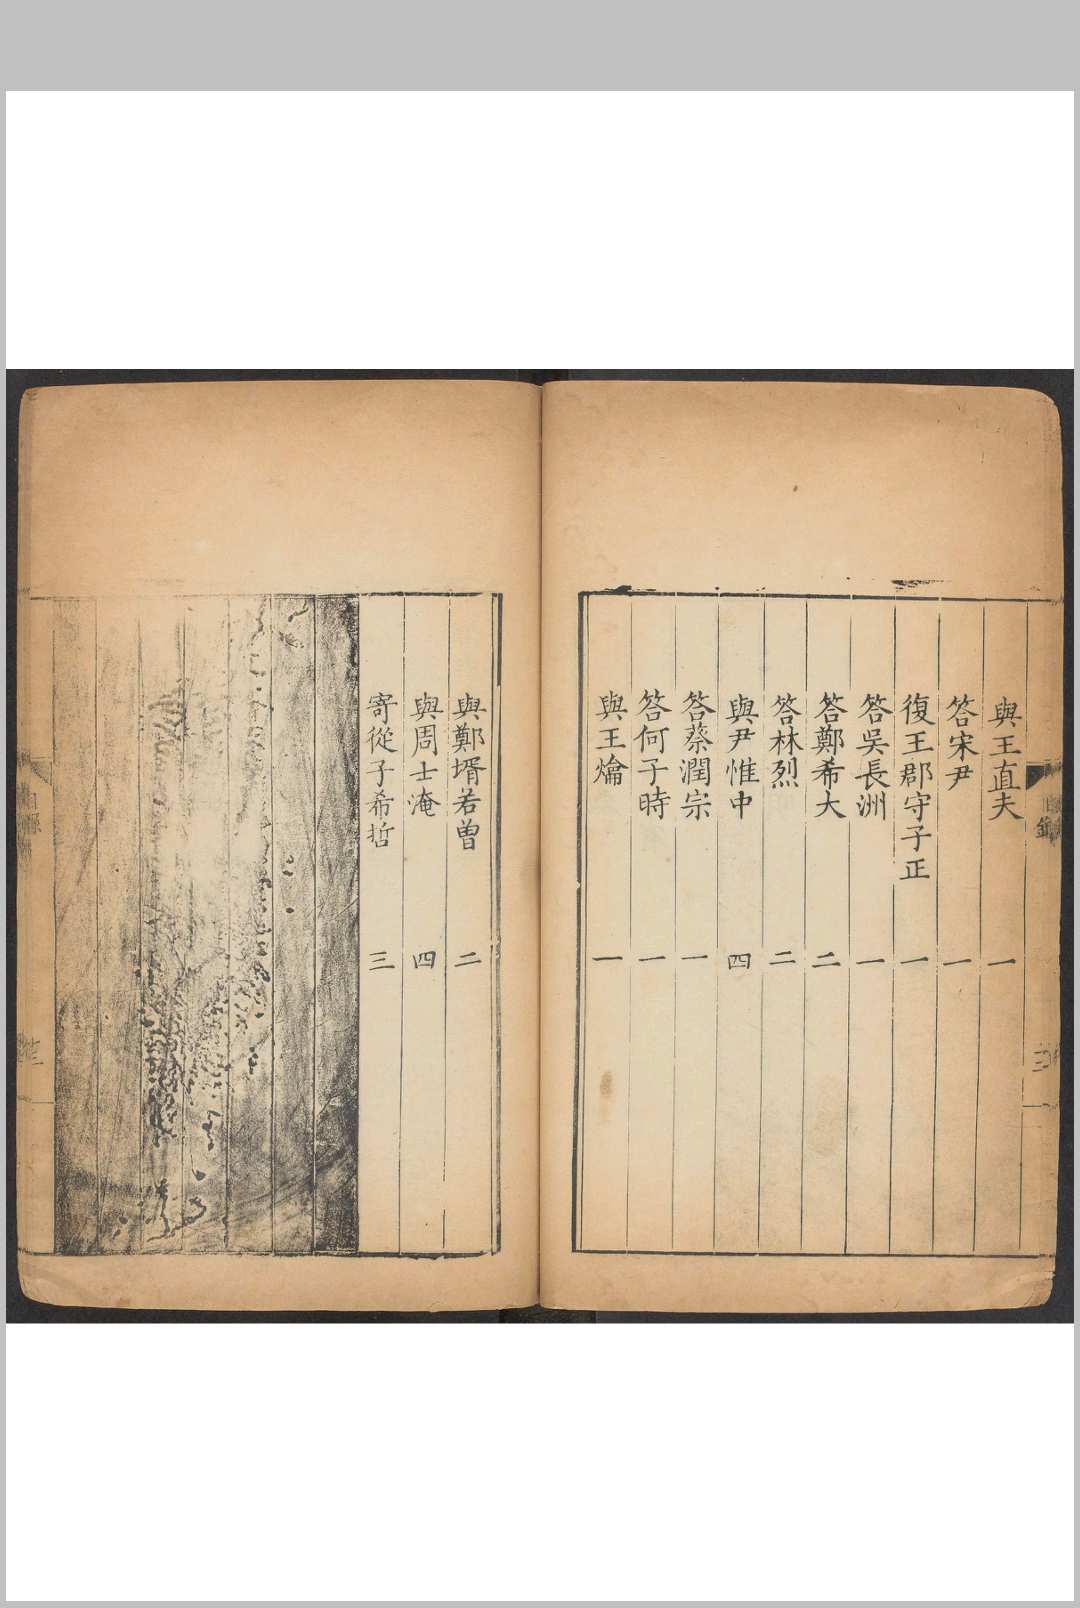 與王直夫 一
答宋尹 一
復王郡守子正 一
答吳長洲 一
答鄭希大 二
答林烈 二
與尹惟中 四
答蔡潤宗 一
答何子時 一
與王爚 一
與鄭壻若曾 二
與周士淹 四
寄從子希哲 三